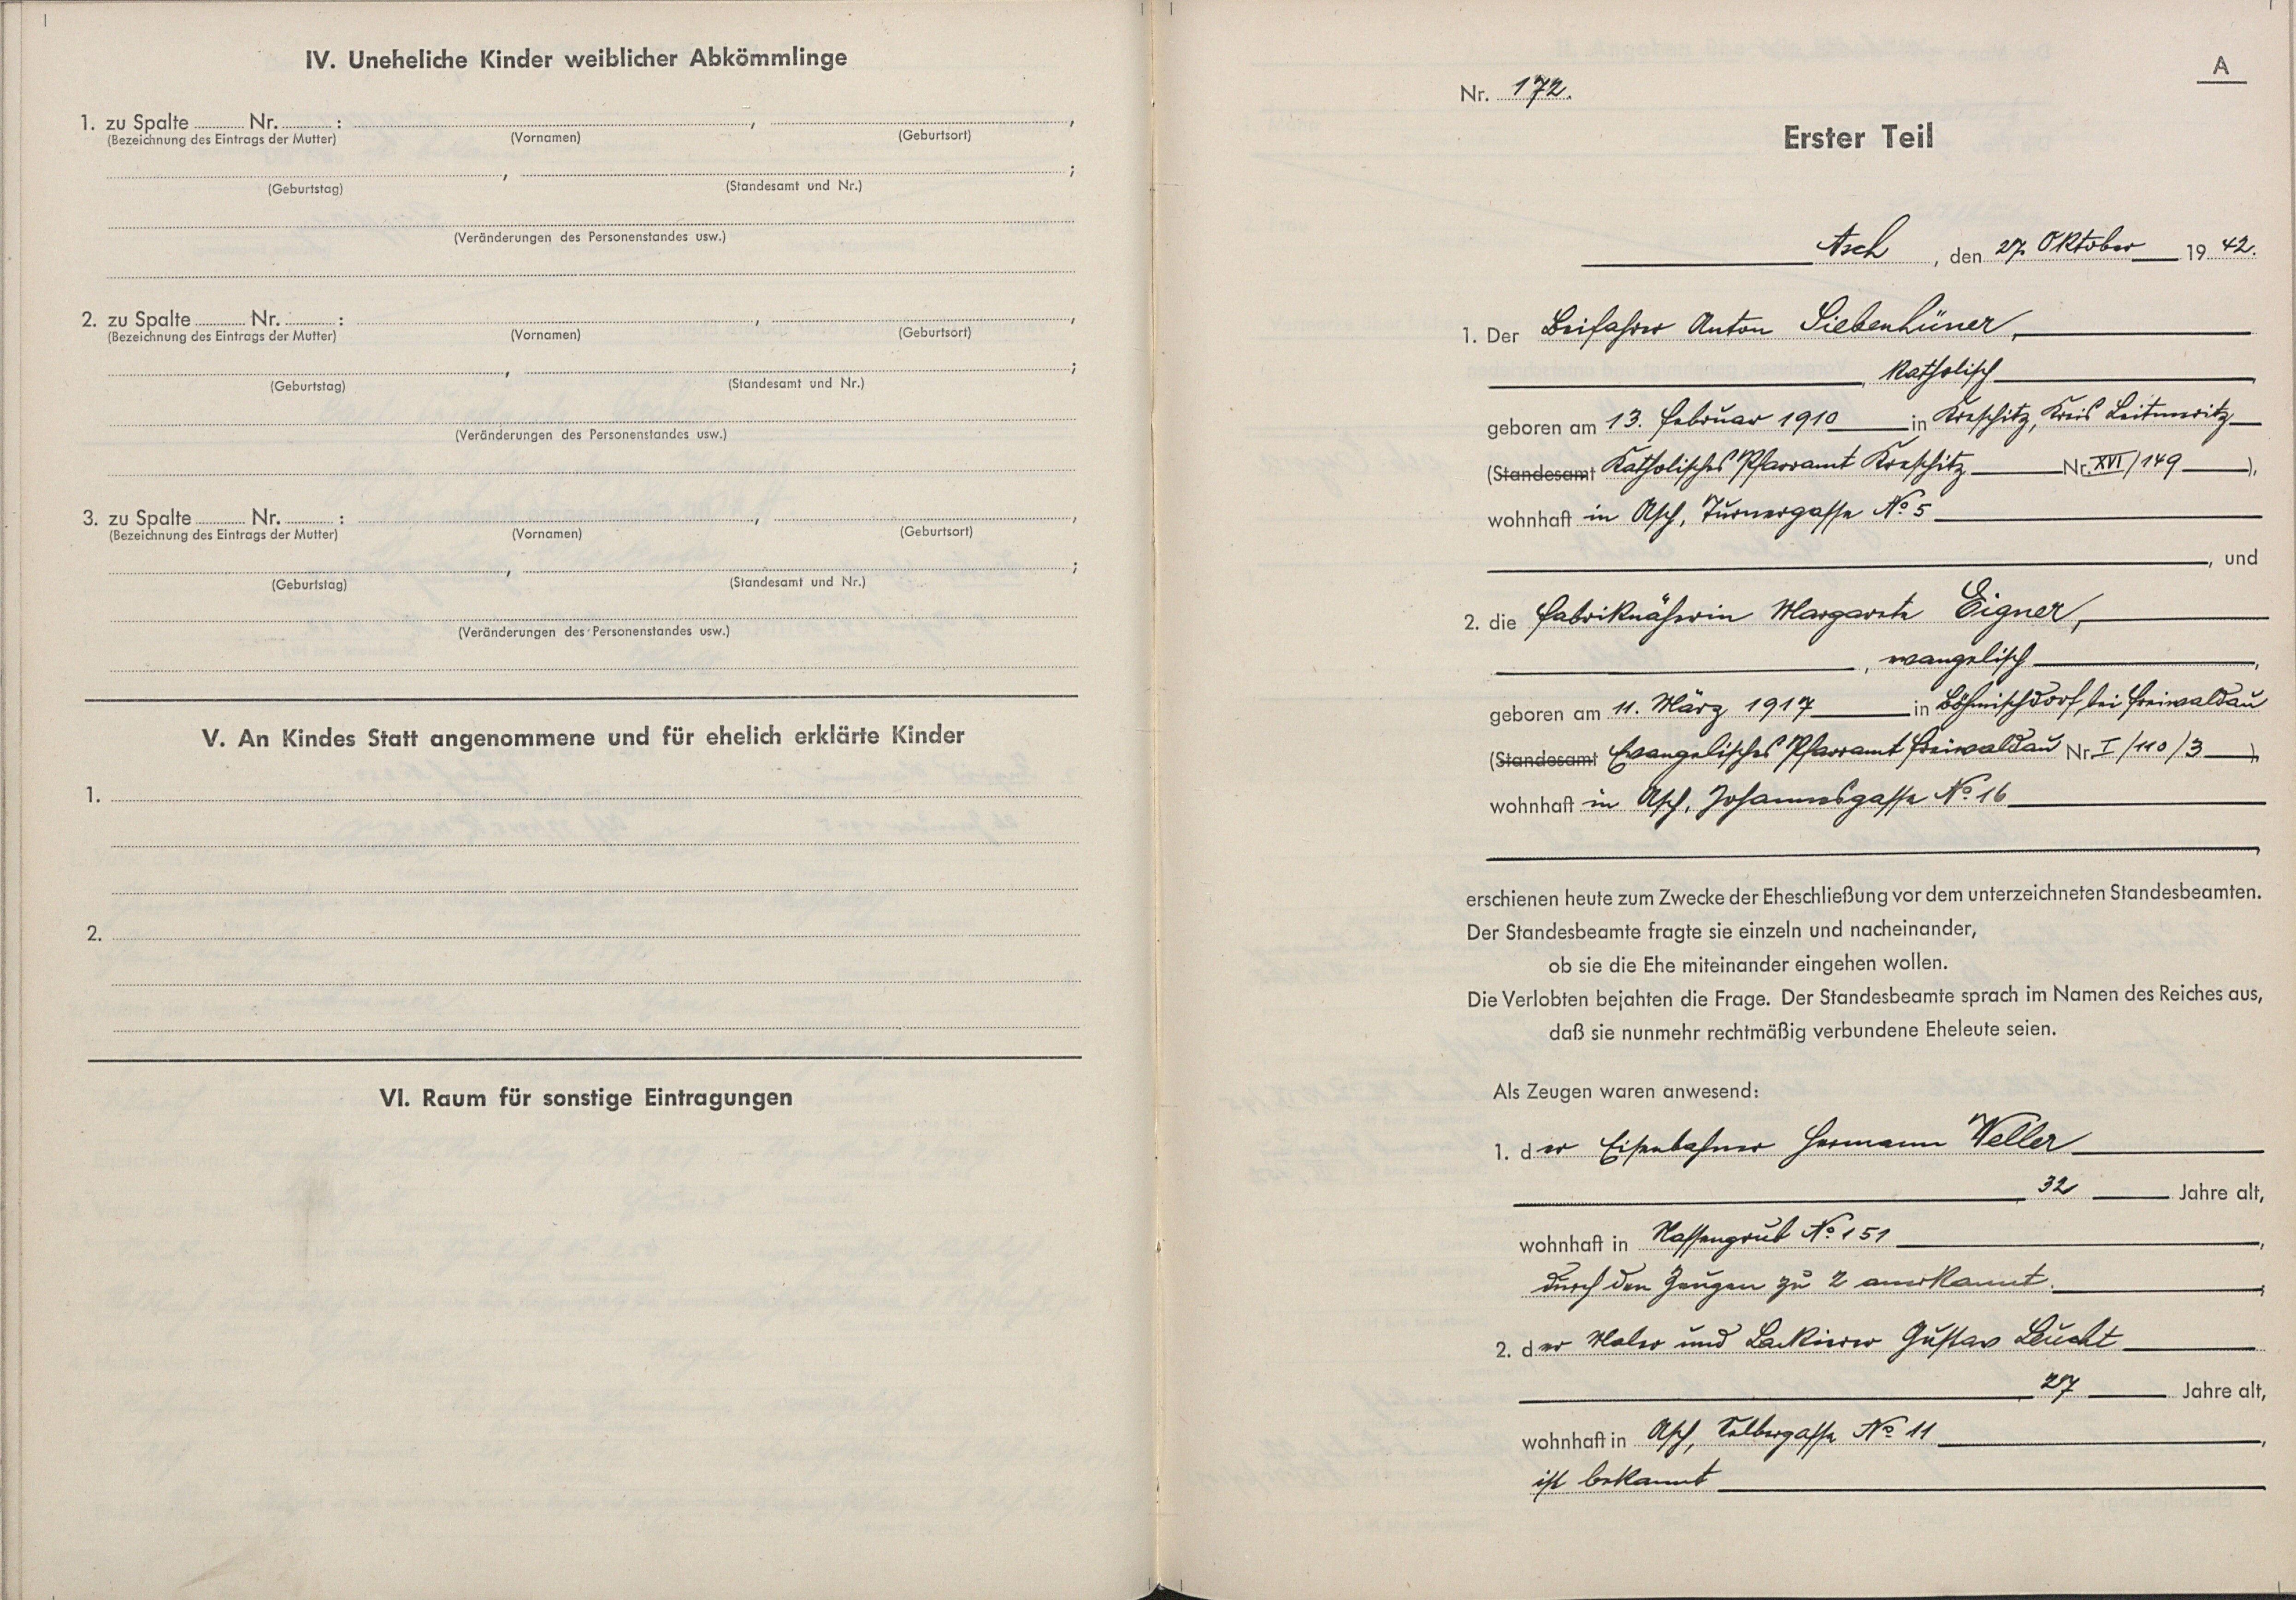 IV. Uneheliche Kinder weiblicher Abkömmlinge
1. zu Spalte ......... Nr. ......... : ........................ , ........................ ,
(Bezeichnung des Eintrags der Mutter) (Vornamen) (Geburtsort)
........................ , ........................ ;
(Geburtstag) (Standesamt und Nr.)
(Veränderungen des Personenstandes usw.)
2. zu Spalte ......... Nr. ......... : ........................ , ........................ ,
(Bezeichnung des Eintrags der Mutter) (Vornamen) (Geburtsort)
........................ , ........................ ;
(Geburtstag) (Standesamt und Nr.)
(Veränderungen des Personenstandes usw.)
3. zu Spalte ......... Nr. ......... : ........................ , ........................ ,
(Bezeichnung des Eintrags der Mutter) (Vornamen) (Geburtsort)
........................ , ........................ ;
(Geburtstag) (Standesamt und Nr.)
(Veränderungen des Personenstandes usw.)
V. An Kindes Statt angenommene und für ehelich erklärte Kinder
1.
2.
VI. Raum für sonstige Eintragungen
A
Nr. 172.
Erster Teil
Asch, den 27. Oktober 1942.
1. Der Beifahrer Anton Siebenhüner,
, katholisch
geboren am 13. Februar 1910 in Kreschitz, Kreis Leitmeritz
(Standesamt Katholisches Pfarramt Kreschitz Nr. XVI/149),
wohnhaft in Asch, Turnergasse No 5
, und
2. die Fabriknäherin Margarete Eigner,
, evangelisch,
geboren am 11. März 1917 in Böhmischdorf, bei Freiwaldau
(Standesamt Evangelisches Pfarramt Freiwaldau Nr. I/110/3),
wohnhaft in Asch, Johannesgasse No 16
erschienen heute zum Zwecke der Eheschließung vor dem unterzeichneten Standesbeamten.
Der Standesbeamte fragte sie einzeln und nacheinander,
ob sie die Ehe miteinander eingehen wollen.
Die Verlobten bejahten die Frage. Der Standesbeamte sprach im Namen des Reiches aus,
daß sie nunmehr rechtmäßig verbundene Eheleute seien.
Als Zeugen waren anwesend:
1. der Eisenbahner Hermann Weller
32 Jahre alt,
wohnhaft in Nassengrub No 151,
durch den Zeugen zu 2 anerkannt.
2. der Maler und Lackierer Gustav Leucht
27 Jahre alt,
wohnhaft in Asch, No 11,
ist bekannt